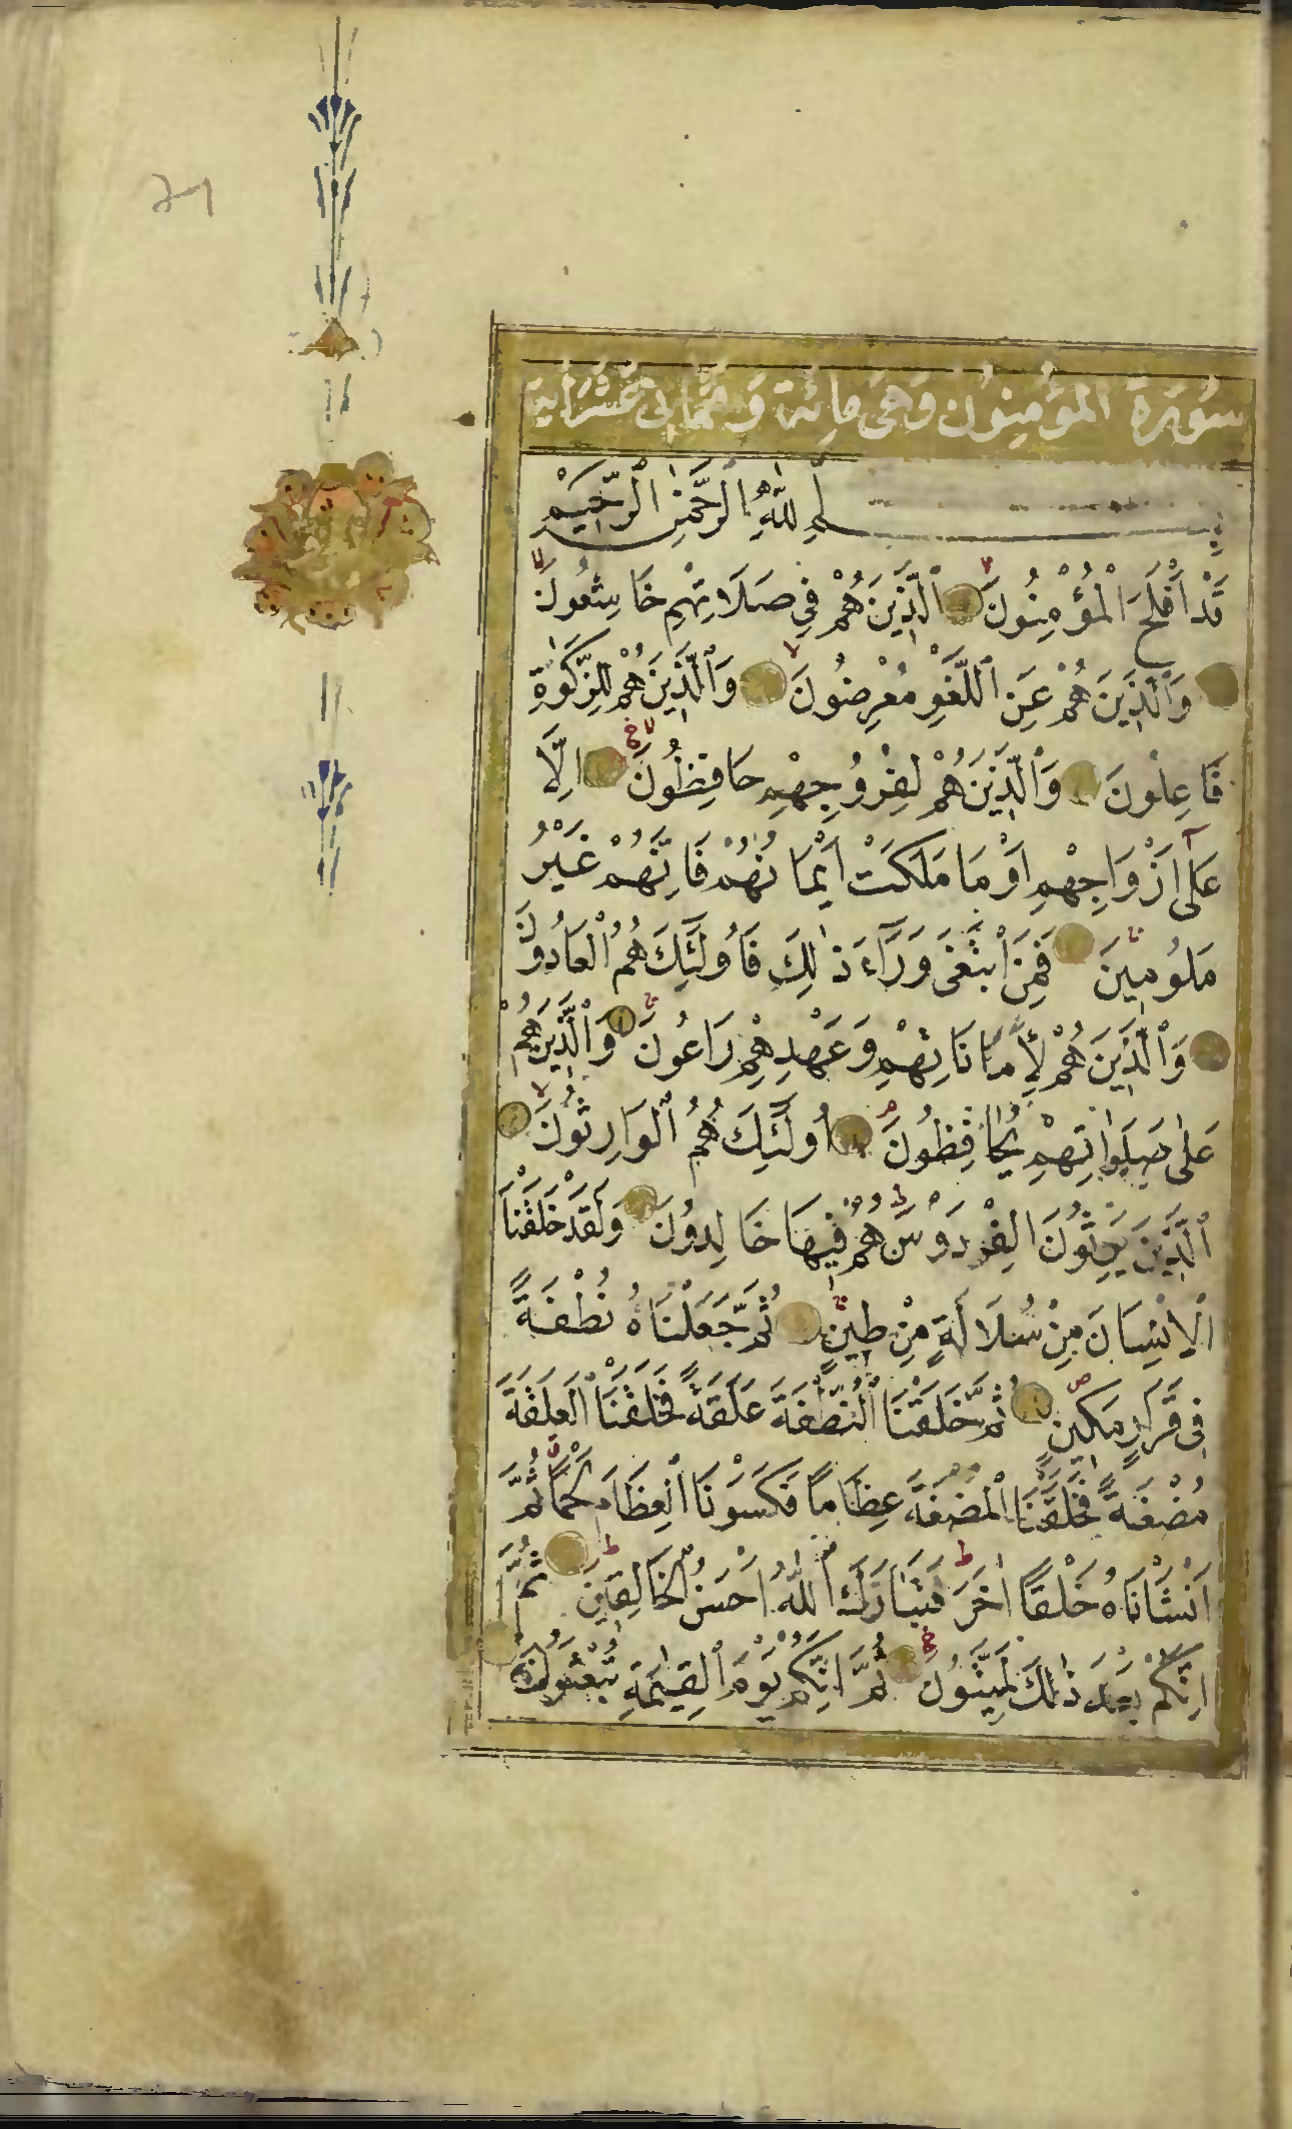 سُورَةُ الْمُؤْمِنُونَ وَهِيَ مِائَةٌ وَثَمَانِي عَشْرَ آيَة
بِسْمِ اللَّهِ الرَّحْمٰنِ الرَّحِيمِ
قَدْ اَفْلَحَ الْمُؤْمِنُونَ اَلَّذِينَ هُمْ فِي صَلَاتِهِمْ خَاشِعُونَ
وَالَّذِينَ هُمْ عَنِ اللَّغْوِ مُعْرِضُونَ وَالَّذِينَ هُمْ لِلزَّكٰوةِ
فَاعِلُونَ وَالَّذِينَ هُمْ لِفُرُوجِهِمْ حَافِظُونَ اِلَّا
عَلٰٓى اَزْوَاجِهِمْ اَوْ مَا مَلَكَتْ اَيْمَانُهُمْ فَاِنَّهُمْ غَيْرُ
مَلُومِينَ فَمَنِ ابْتَغٰى وَرَآءَ ذٰلِكَ فَاُولٰٓئِكَ هُمُ الْعَادُونَ
وَالَّذِينَ هُمْ لِاَمَانَاتِهِمْ وَعَهْدِهِمْ رَاعُونَ وَالَّذِينَ هُمْ
عَلٰى صَلَوَاتِهِمْ يُحَافِظُونَ اُولٰٓئِكَ هُمُ الْوَارِثُونَ
اَلَّذِينَ يَرِثُونَ الْفِرْدَوْسَ هُمْ فِيهَا خَالِدُونَ وَلَقَدْ خَلَقْنَا
الْاِنْسَانَ مِنْ سُلَالَةٍ مِنْ طِينٍ ثُمَّ جَعَلْنَاهُ نُطْفَةً
فِي قَرَارٍ مَكِينٍ ثُمَّ خَلَقْنَا النُّطْفَةَ عَلَقَةً فَخَلَقْنَا الْعَلَقَةَ
مُضْغَةً فَخَلَقْنَا الْمُضْغَةَ عِظَامًا فَكَسَوْنَا الْعِظَامَ لَحْمًا ثُمَّ
اَنْشَاْنَاهُ خَلْقًا اٰخَرَ فَتَبَارَكَ اللّٰهُ اَحْسَنُ الْخَالِقِينَ ثُمَّ
اِنَّكُمْ بَعْدَ ذٰلِكَ لَمَيِّتُونَ ثُمَّ اِنَّكُمْ يَوْمَ الْقِيٰمَةِ تُبْعَثُونَ